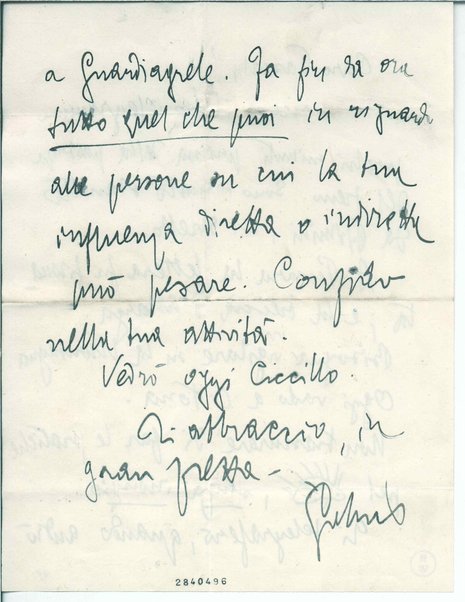 a Guardiagrele. Fa fin da ora
tutto quel che puoi in riguardo
alle persone su cui la tua
influenza diretta o indiretta
può pesare. Confido
nella tua attività.
Vedrò oggi Ciccillo.
Ti abbraccio, in
gran fretta -
Gabriele
2840496